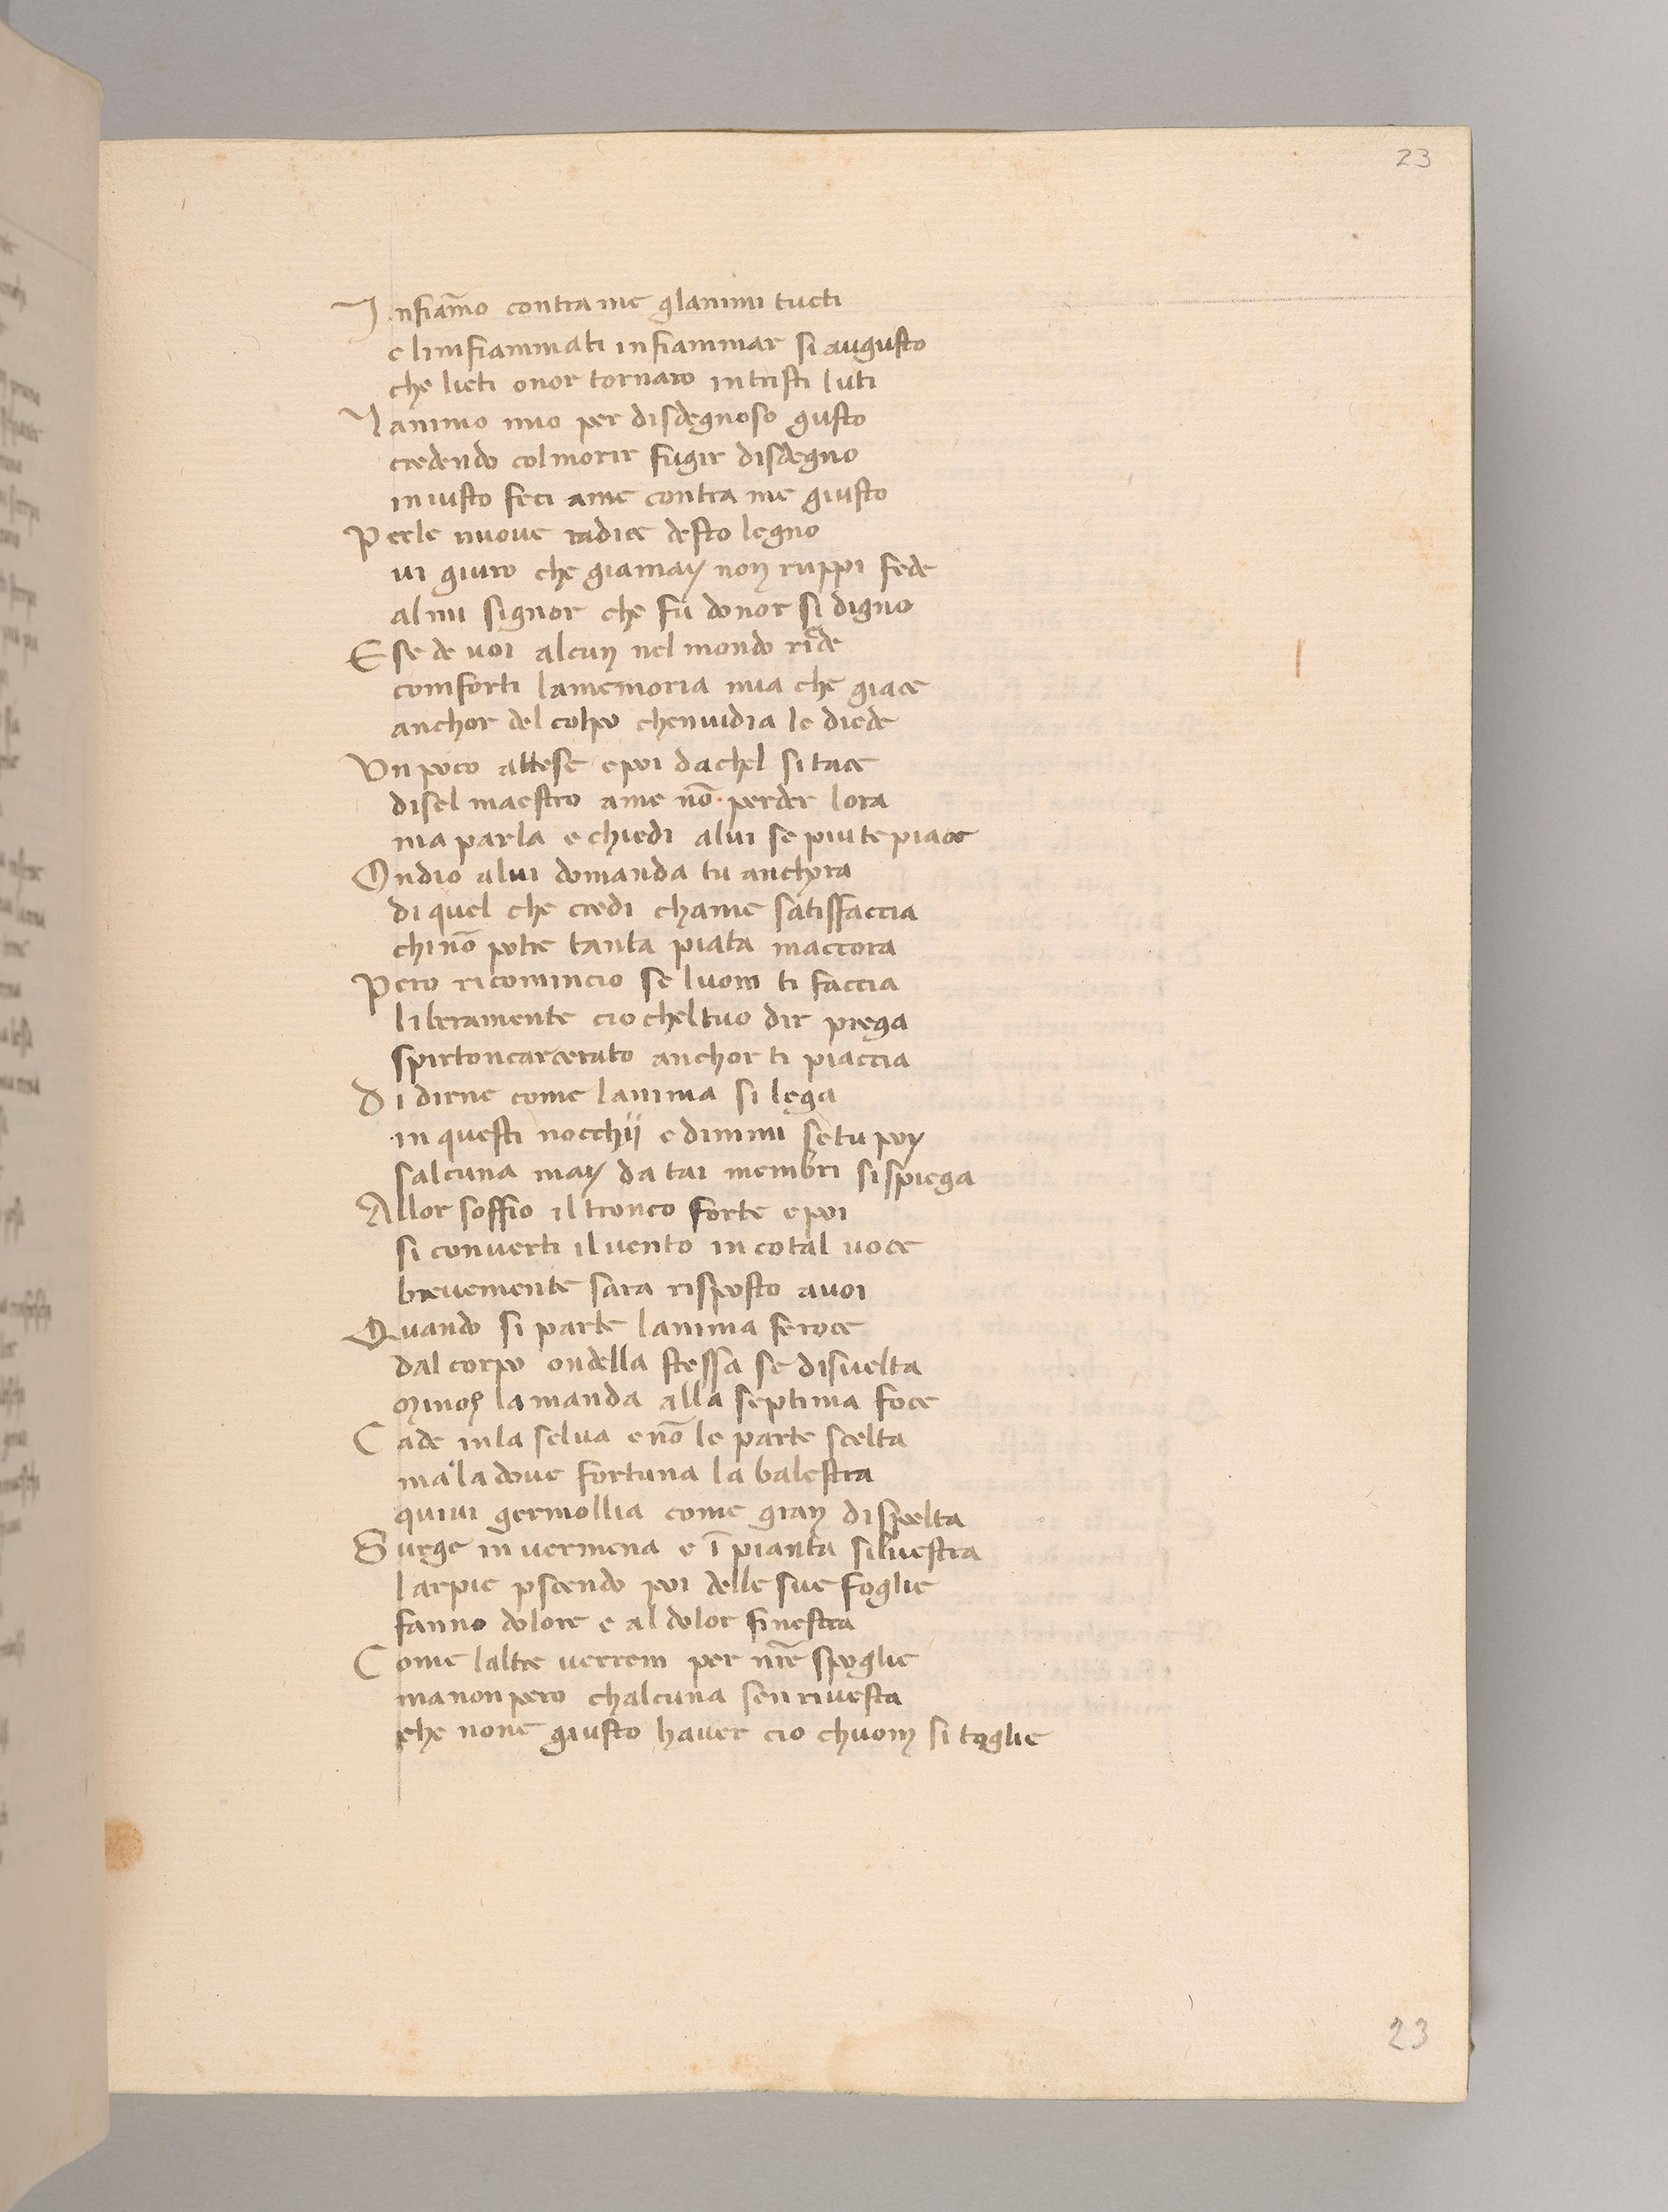 23
Infiam̄o contra me glanimi tucti
e limfiammati infiammar si augusto
che lieti onor tornaro in tristi luti
Lanimo mio per disdegnoso gusto
credendo col morir fugir disdegno
iniusto feci ame contra me giusto
Perle nuove radice desto legno
vi giuro che giamaj non ruppi fede
almi signor che fu donor si digno
E se de voi alcun nel mondo riede
comforti lamemoria mia che giace
anchor del colpo chenvidia le diede
Un poco attese epoi dachel si tace
disel maestro ame nō perder lora
ma parla e chiedi alui se piu te piace
Ondio alui domanda tu anchora
di quel che credi chame satisffaccia
chi nō potre tanta piata maccora
Pero ricomincio se luom ti faccia
liberamente cio cheltuo dir prega
spirtoncarcerato anchor ti piaccia
Di dirne come lanima si lega
in questi nocchij e dimmi se tu poj
salcuna maj da tai membri si spiega
Allor soffio il tronco forte epoi
si converti il vento in cotal voce
brevemente sara risposto avoi
Quando si parte lanima feroce
dal corpo ondella stessa se disvelta
Minos la manda alla septima foce
Cade inla selva e nō le parte scelta
ma la dove fortuna la balestra
quivi germollia come gran di spelta
Surge in vermena e ī pianta silvestra
larpie pscendo poi delle sue foglie
fanno dolore e al dolor finestra
Come laltre verrem per nr̄e spoglie
ma non pero chalcuna sen rivesta
che none giusto haver cio chuom si toglie
23